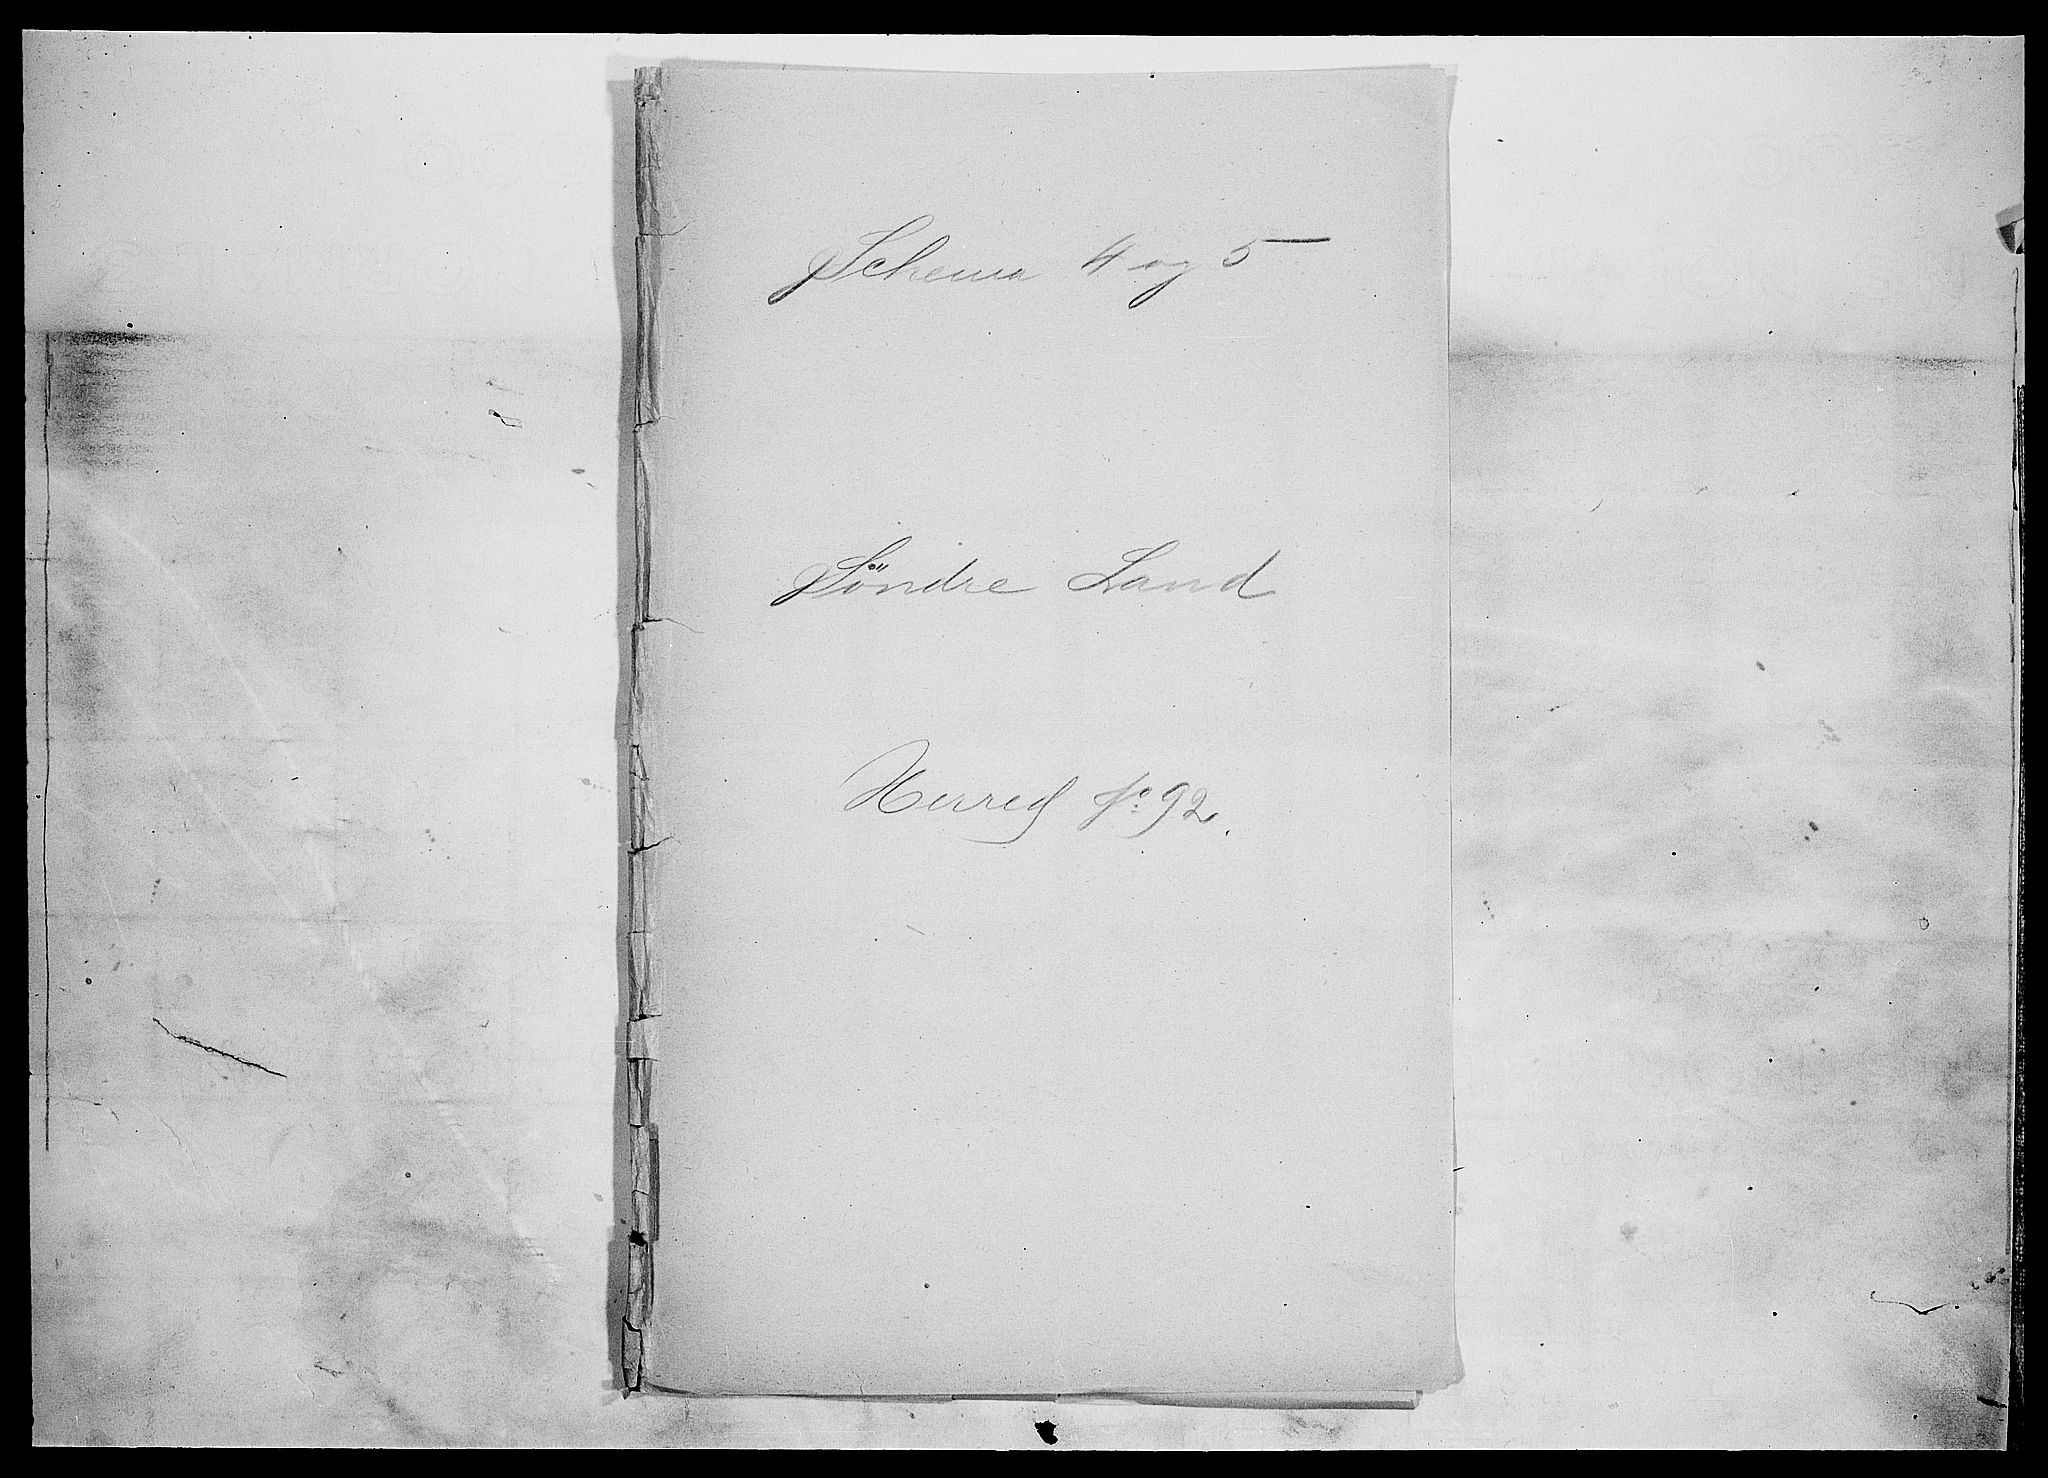 Schema 4 og 5
Söndre Land
Herred No 92.